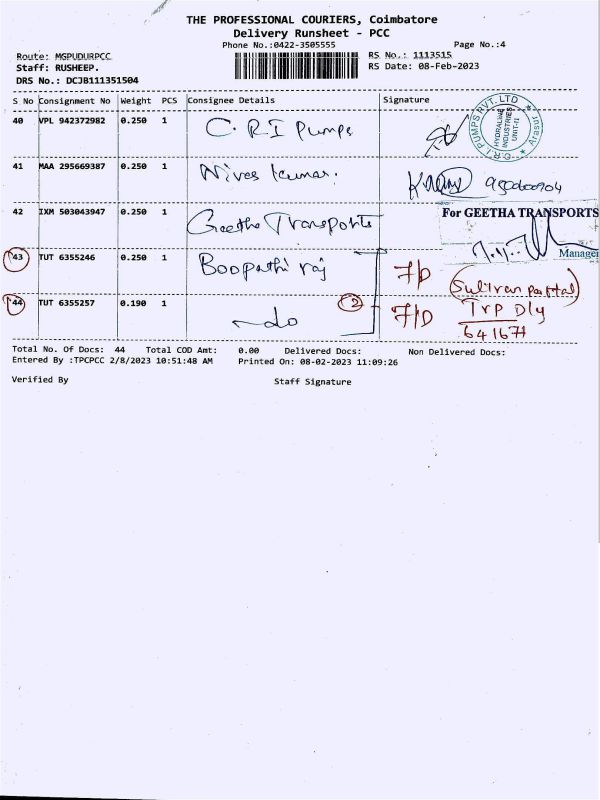 THE PROFESSIONAL COURIERS, Coimbatore
Delivery Runsheet - PCC
Phone No.:0422-3505555 Page No.:4
Route: MGPUDURPCC RS No.: 1113515
Staff: RUSHEEP. RS Date: 08-Feb-2023
DRS No.: DCJB111351504
S No Consignment No Weight PCS Consignee Details Signature
40 VPL 942372982 0.250 1 C.R.I Pumps
C.R.I. PUMPS PVT. LTD HYDRALINE INDUSTRIES UNIT-II Arasur
41 MAA 295669387 0.250 1 Nives kumar.
42 IXM 503043947 0.250 1 Geetha Transports
For GEETHA TRANSPORTS
Manager
43 TUT 6355246 0.250 1 Boopathi raj F/D (Sultanpattai)
44 TUT 6355257 0.190 1 -do 2 F/D Trp Dly
641671
Total No. Of Docs: 44 Total COD Amt: 0.00 Delivered Docs: Non Delivered Docs:
Entered By :TPCPCC 2/8/2023 10:51:48 AM Printed On: 08-02-2023 11:09:26
Verified By Staff Signature